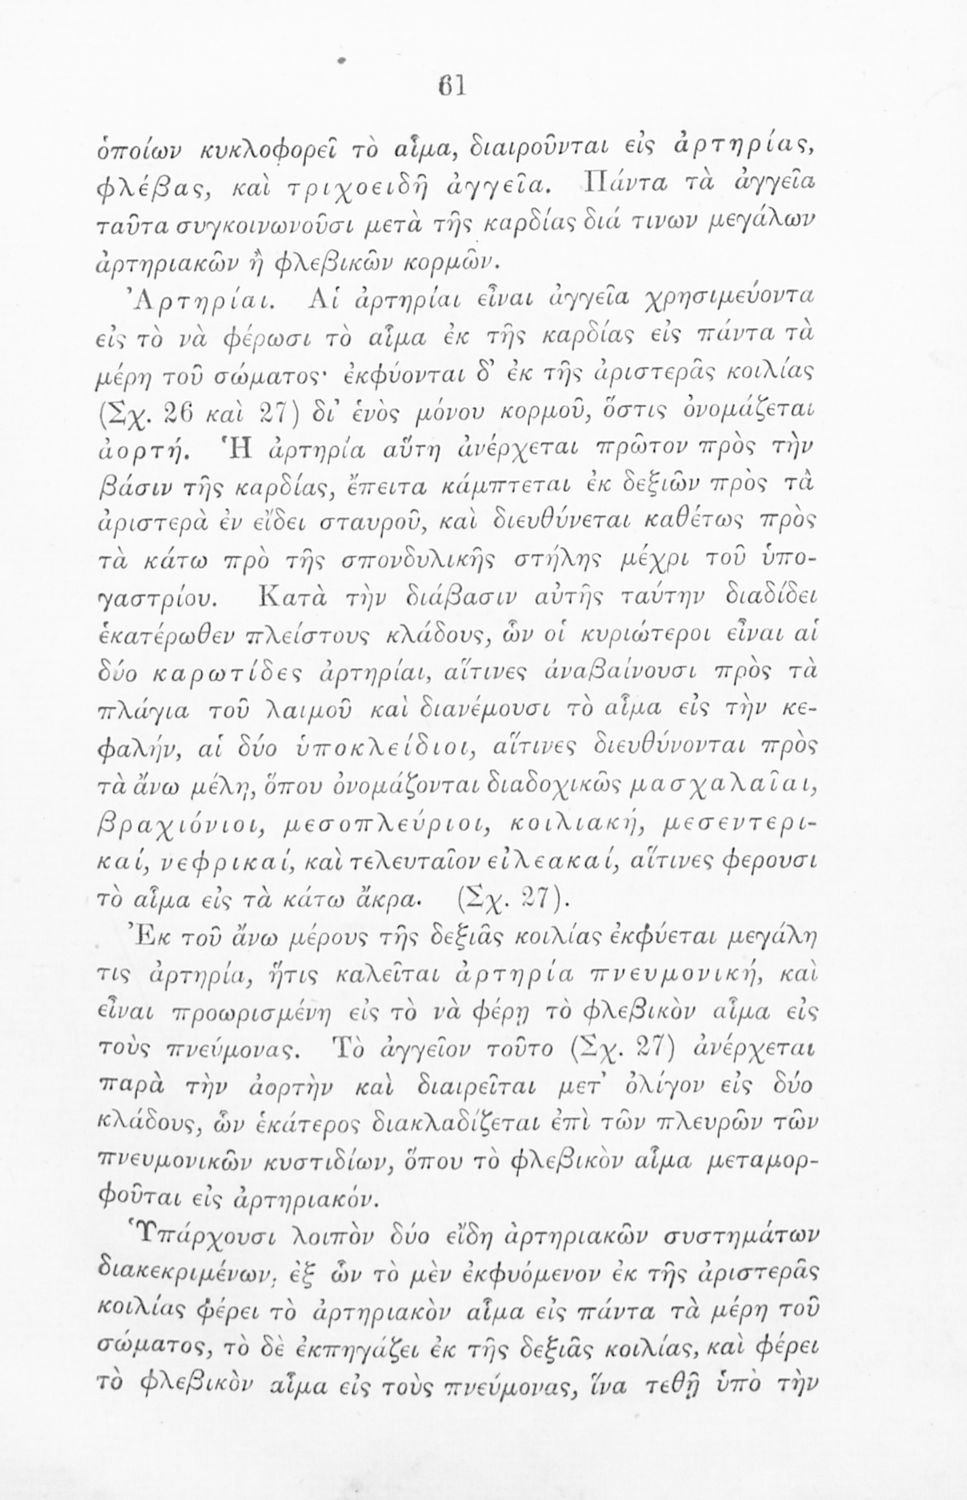 61
ὁποίων κυκλοφορεῖ τὸ αἷμα, διαιροῦνται εἰς ἀρτηρίας,
φλέβας, καὶ τριχοειδῆ ἀγγεῖα. Πάντα τὰ ἀγγεῖα
ταῦτα συγκοινωνοῦσι μετὰ τῆς καρδίας διά τινων μεγάλων
ἀρτηριακῶν ἢ φλεβικῶν κορμῶν.
Ἀρτηρίαι. Αἱ ἀρτηρίαι εἶναι ἀγγεῖα χρησιμεύοντα
εἰς τὸ νὰ φέρωσι τὸ αἷμα ἐκ τῆς καρδίας εἰς πάντα τὰ
μέρη τοῦ σώματος· ἐκφύονται δ' ἐκ τῆς ἀριστερᾶς κοιλίας
(Σχ. 26 καὶ 27) δι' ἑνὸς μόνου κορμοῦ, ὅστις ὀνομάζεται
ἀορτή. Ἡ ἀρτηρία αὕτη ἀνέρχεται πρῶτον πρὸς τὴν
βάσιν τῆς καρδίας, ἔπειτα κάμπτεται ἐκ δεξιῶν πρὸς τὰ
ἀριστερὰ ἐν εἴδει σταυροῦ, καὶ διευθύνεται καθέτως πρὸς
τὰ κάτω πρὸ τῆς σπονδυλικῆς στήλης μέχρι τοῦ ὑπο-
γαστρίου. Κατὰ τὴν διάβασιν αὐτῆς ταύτην διαδίδει
ἑκατέρωθεν πλείστους κλάδους, ὧν οἱ κυριώτεροι εἶναι αἱ
δύο καρωτίδες ἀρτηρίαι, αἵτινες ἀναβαίνουσι πρὸς τὰ
πλάγια τοῦ λαιμοῦ καὶ διανέμουσι τὸ αἷμα εἰς τὴν κε-
φαλήν, αἱ δύο ὑποκλείδιοι, αἵτινες διευθύνονται πρὸς
τὰ ἄνω μέλη, ὅπου ὀνομάζονται διαδοχικῶς μασχαλαῖαι,
βραχιόνιοι, μεσοπλεύριοι, κοιλιακή, μεσεντερι-
καί, νεφρικαί, καὶ τελευταῖον εἰλεακαί, αἵτινες φερουσι
τὸ αἷμα εἰς τὰ κάτω ἄκρα. (Σχ. 27).
Ἐκ τοῦ ἄνω μέρους τῆς δεξιᾶς κοιλίας ἐκφύεται μεγάλη
τις ἀρτηρία, ἥτις καλεῖται ἀρτηρία πνευμονική, καὶ
εἶναι προωρισμένη εἰς τὸ νὰ φέρῃ τὸ φλεβικὸν αἷμα εἰς
τοὺς πνεύμονας. Τὸ ἀγγεῖον τοῦτο (Σχ. 27) ἀνέρχεται
παρὰ τὴν ἀορτὴν καὶ διαιρεῖται μετ' ὀλίγον εἰς δύο
κλάδους, ὧν ἑκάτερος διακλαδίζεται ἐπὶ τῶν πλευρῶν τῶν
πνευμονικῶν κυστιδίων, ὅπου τὸ φλεβικὸν αἷμα μεταμορ-
φοῦται εἰς ἀρτηριακόν.
Ὑπάρχουσι λοιπὸν δύο εἴδη ἀρτηριακῶν συστημάτων
διακεκριμένων, ἐξ ὧν τὸ μὲν ἐκφυόμενον ἐκ τῆς ἀριστερᾶς
κοιλίας φέρει τὸ ἀρτηριακὸν αἷμα εἰς πάντα τὰ μέρη τοῦ
σώματος, τὸ δὲ ἐκπηγάζει ἐκ τῆς δεξιᾶς κοιλίας, καὶ φέρει
τὸ φλεβικὸν αἷμα εἰς τοὺς πνεύμονας, ἵνα τεθῇ ὑπὸ τὴν